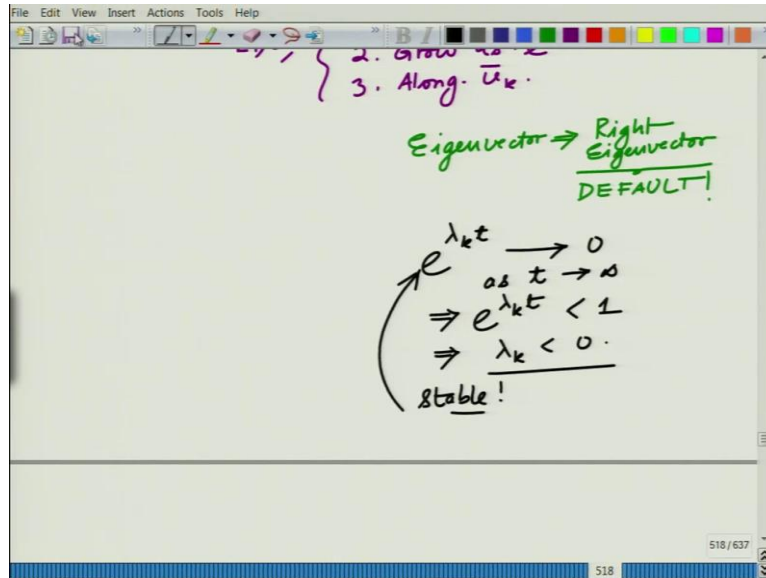 File Edit View Insert Actions Tools Help
2. Grow as e
3. Along. ū_k.
Eigenvector ⇒ Right
Eigenvector
DEFAULT!
e^{λ_k t} → 0
as t → ∞
⇒ e^{λ_k t} < 1
⇒ λ_k < 0.
stable!
518/637
518